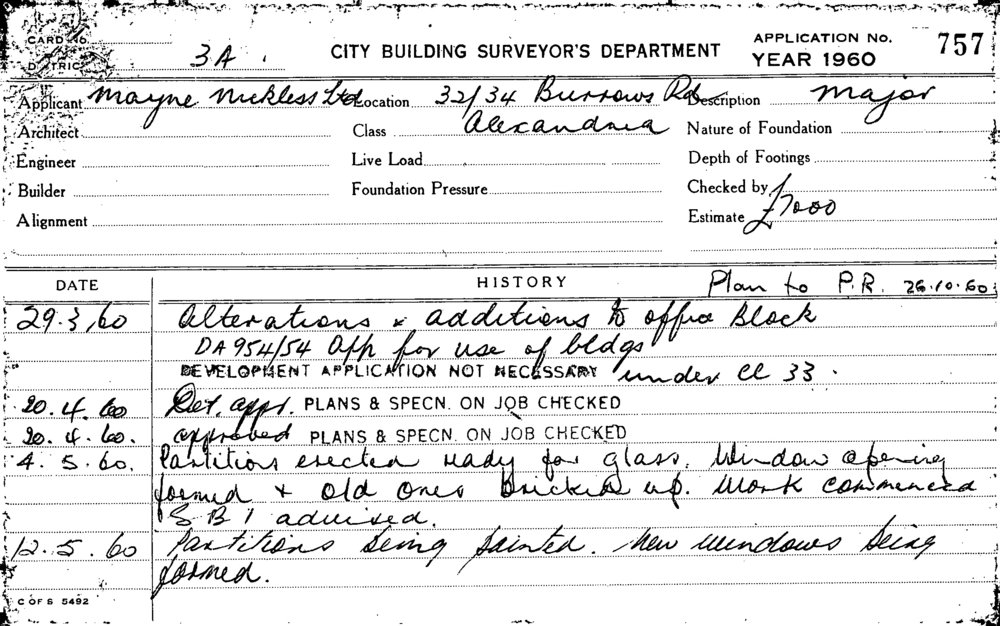 CARD No.
DISTRICT 3A. CITY BUILDING SURVEYOR'S DEPARTMENT APPLICATION No. 757
YEAR 1960
Applicant Mayne Nickless Ltd Location 32/34 Burrows Rd Description Major
Architect Class Alexandria Nature of Foundation
Engineer Live Load Depth of Footings
Builder Foundation Pressure Checked by
Alignment Estimate £7000
DATE HISTORY Plan to P.R. 26.10.60
29.3.60 Alterations & additions to office Block
DA 954/54 App for use of bldgs
DEVELOPMENT APPLICATION NOT NECESSARY under Cl 33.
20.4.60 Det. appr. PLANS & SPECN. ON JOB CHECKED
20.4.60. approved PLANS & SPECN. ON JOB CHECKED
4.5.60. Partitions erected ready for glass. Window opening
formed & old ones bricked up. Work commenced
S B I advised.
12.5.60 Partitions being painted. New windows being
formed.
C OF S 5492